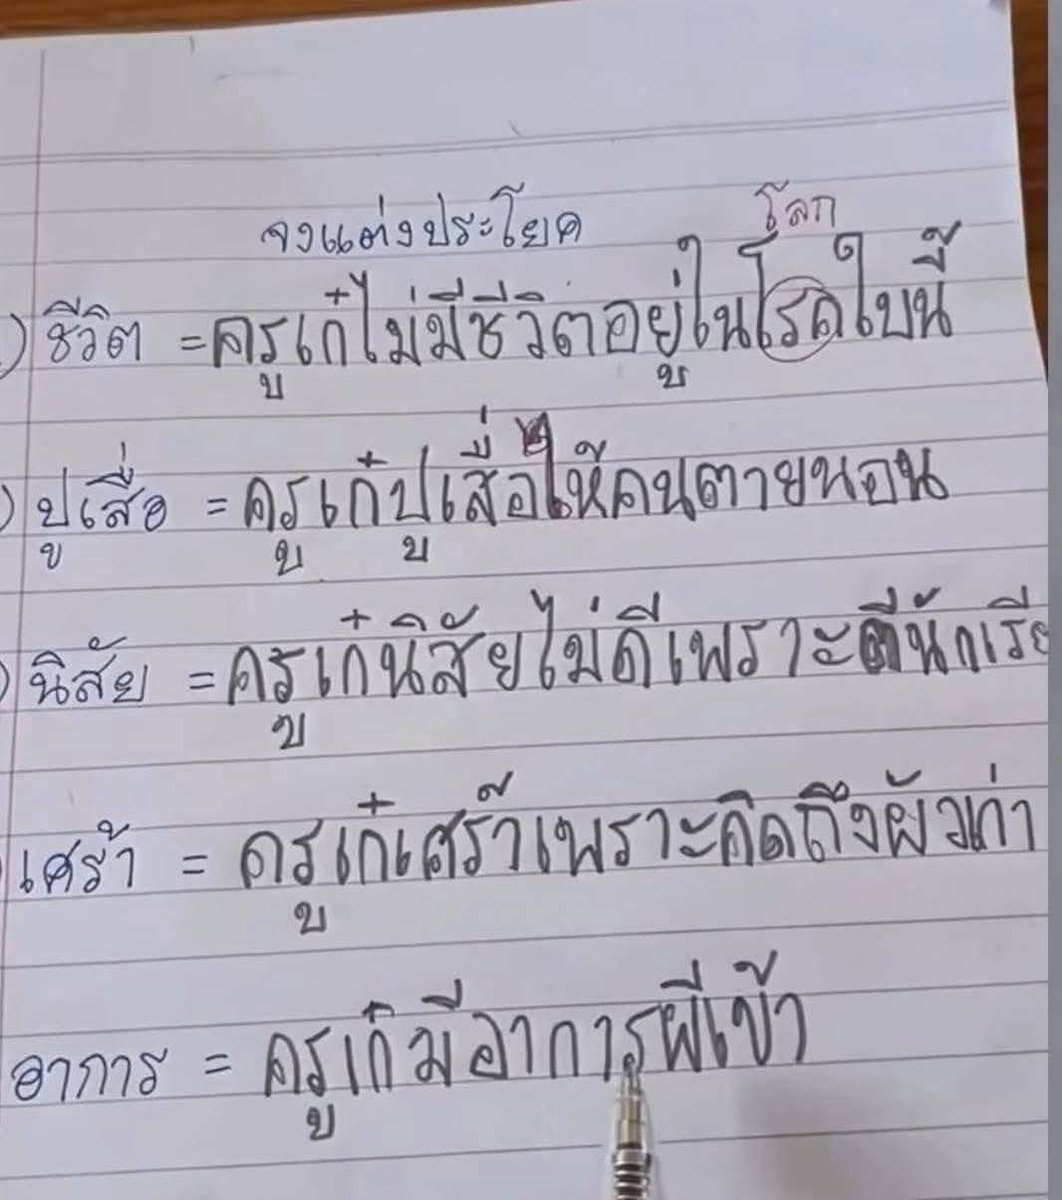 จงแต่งประโยค
โลก
) ชีวิต = ครูเก๋ไม่มีชีวิตอยู่ในโรคใบนี้
) ปูเสื่อ = ครูเก๋ปูเสื่อให้คนตายนอน
) นิสัย = ครูเก๋นิสัยไม่ดีเพราะตีนักเรีย
) เศร้า = ครูเก๋เศร้าเพราะคิดถึงผัวเก่า
อาการ = ครูเก๋มีอาการผีเข้า